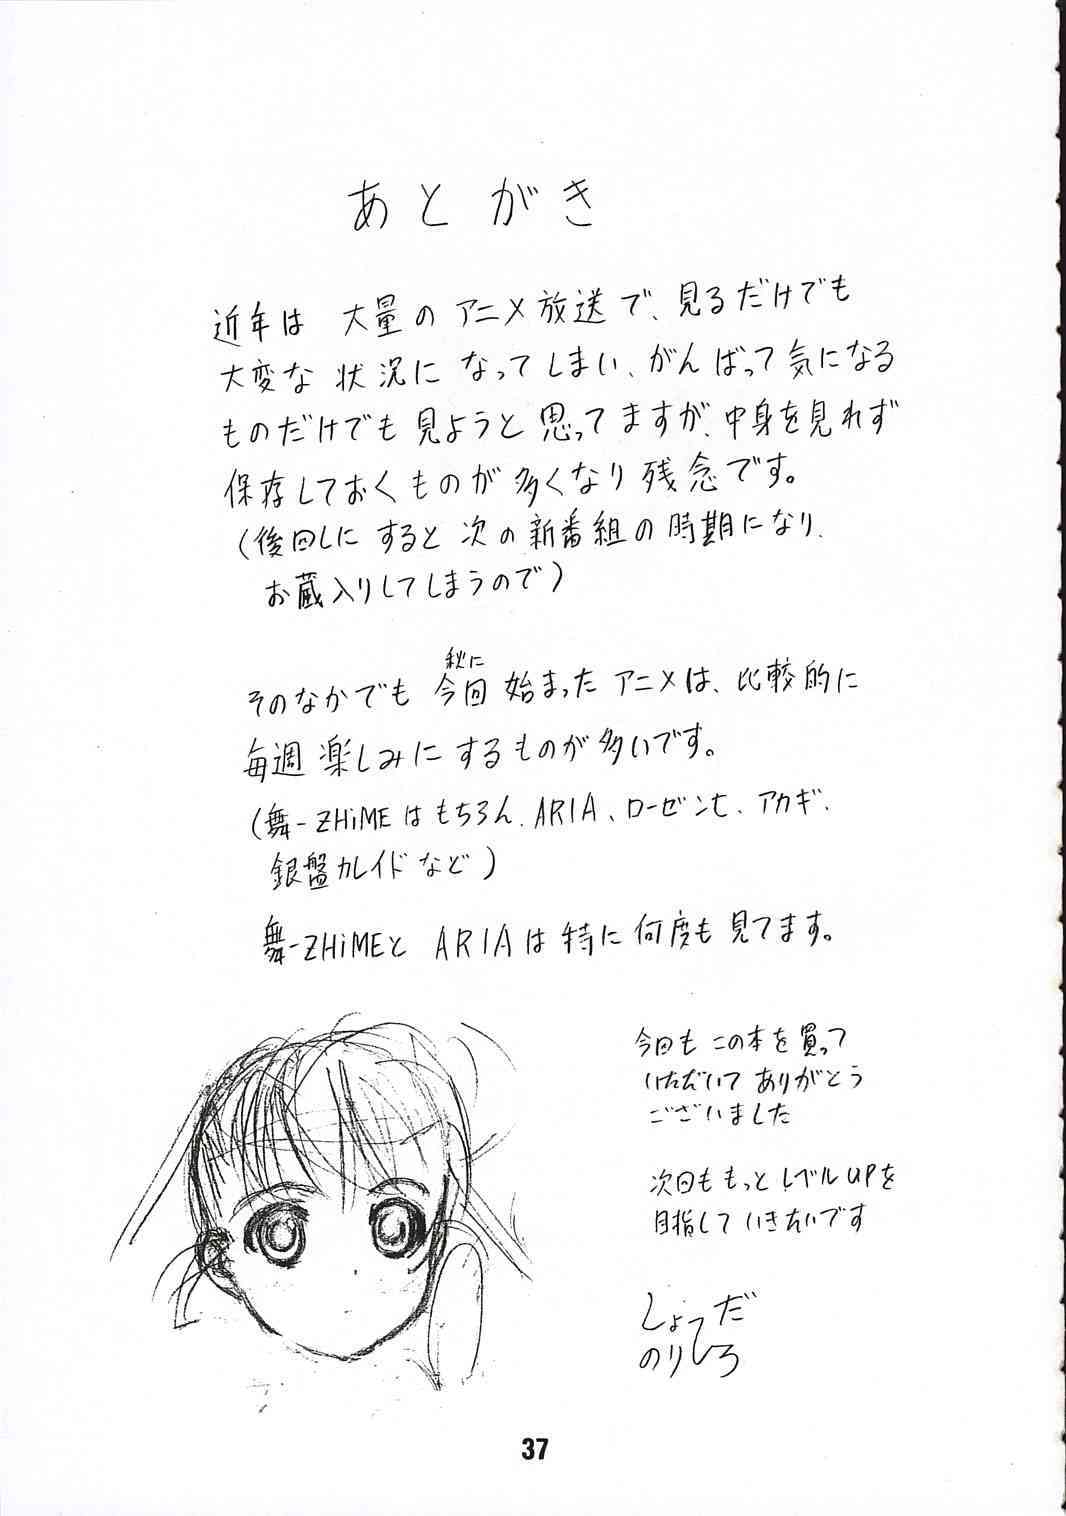 あとがき
近年は 大量のアニメ放送で、見るだけでも
大変な 状況に なってしまい、がんばって気になる
ものだけでも 見ようと 思ってますが、中身を見れず
保存しておくものが 多くなり 残念です。
(後回しに すると 次の新番組の時期になり、
お蔵入りしてしまうので)
秋に
そのなかでも 今回 始まった アニメは、比較的に
毎週 楽しみに するものが 多いです。
(舞-ZHiMEはもちろん、ARIA、ローゼンも、アカギ、
銀盤カレイドなど)
舞-ZHiMEと ARIAは特に何度も 見てます。
今回も この本を買って
いただいて ありがとう
ございました
次回も もっと レベルUPを
目指して いきたいです
しょってだ
のりしろ
37